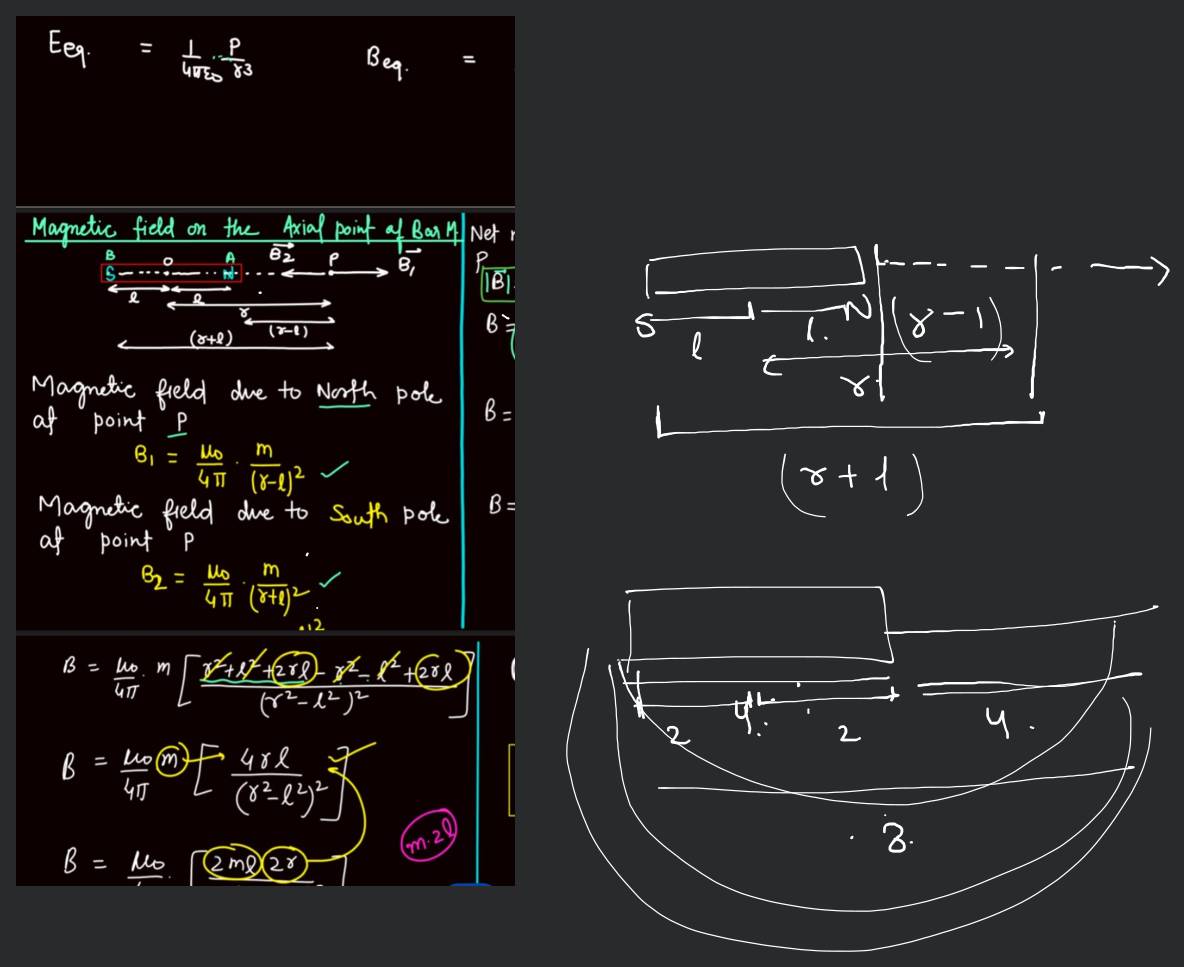 Eeq. = 1/4πε0 · P/r3    Beq. =
Magnetic field on the Axial point of Bar M
Net
B O A B2 P B1
S N
P
l l
|B|
r
(r-l)
B =
(r+l)
Magnetic field due to North pole
at point P
B =
B1 = μ0/4π · m/(r-l)2 ✓
Magnetic field due to South pole
B =
at point P
B2 = μ0/4π · m/(r+l)2 ✓
B = μ0/4π · m [r2+l2+2rl-r2-l2+2rl/(r2-l2)2]
B = μ0/4π m [4rl/(r2-l2)2]
m.2l
B = μ0 [2ml 2r
S N (r-1)
l l.
r
(r+l)
4
2 2 4.
8.